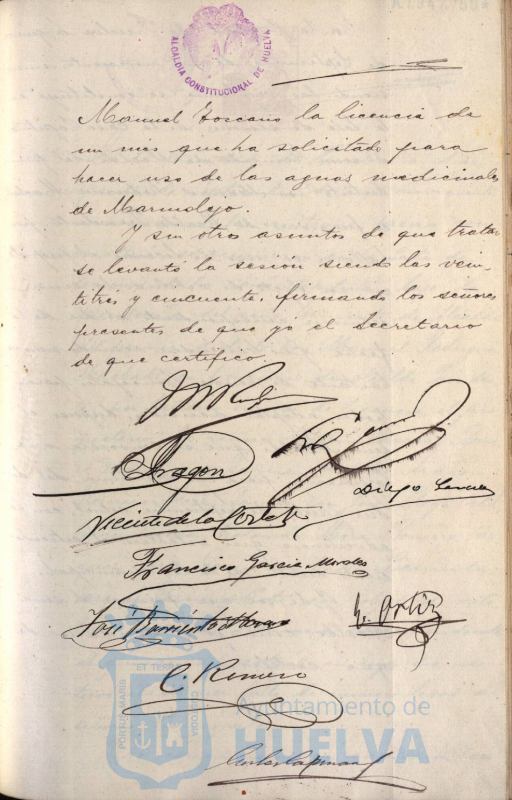 ALCALDÍA CONSTITUCIONAL DE HUELVA
Manuel Toscano la licencia de
un mes que ha solicitado para
hacer uso de las aguas medicinales
de Marmolejo.
Y sin otros asuntos de que tratar
se levantó la sesión siendo las vein-
titrés y cincuenta, firmando los señores
presentes de que yo el Secretario
de que certifico.
Aragon
Diego
Vicente de la Corte
Francisco Garcia Morales
José Barrientos
G. Ortiz
C. Romero
PORTUS MARIS ET TERRAE CUSTODIA
Ayuntamiento de
HUELVA
Carlos